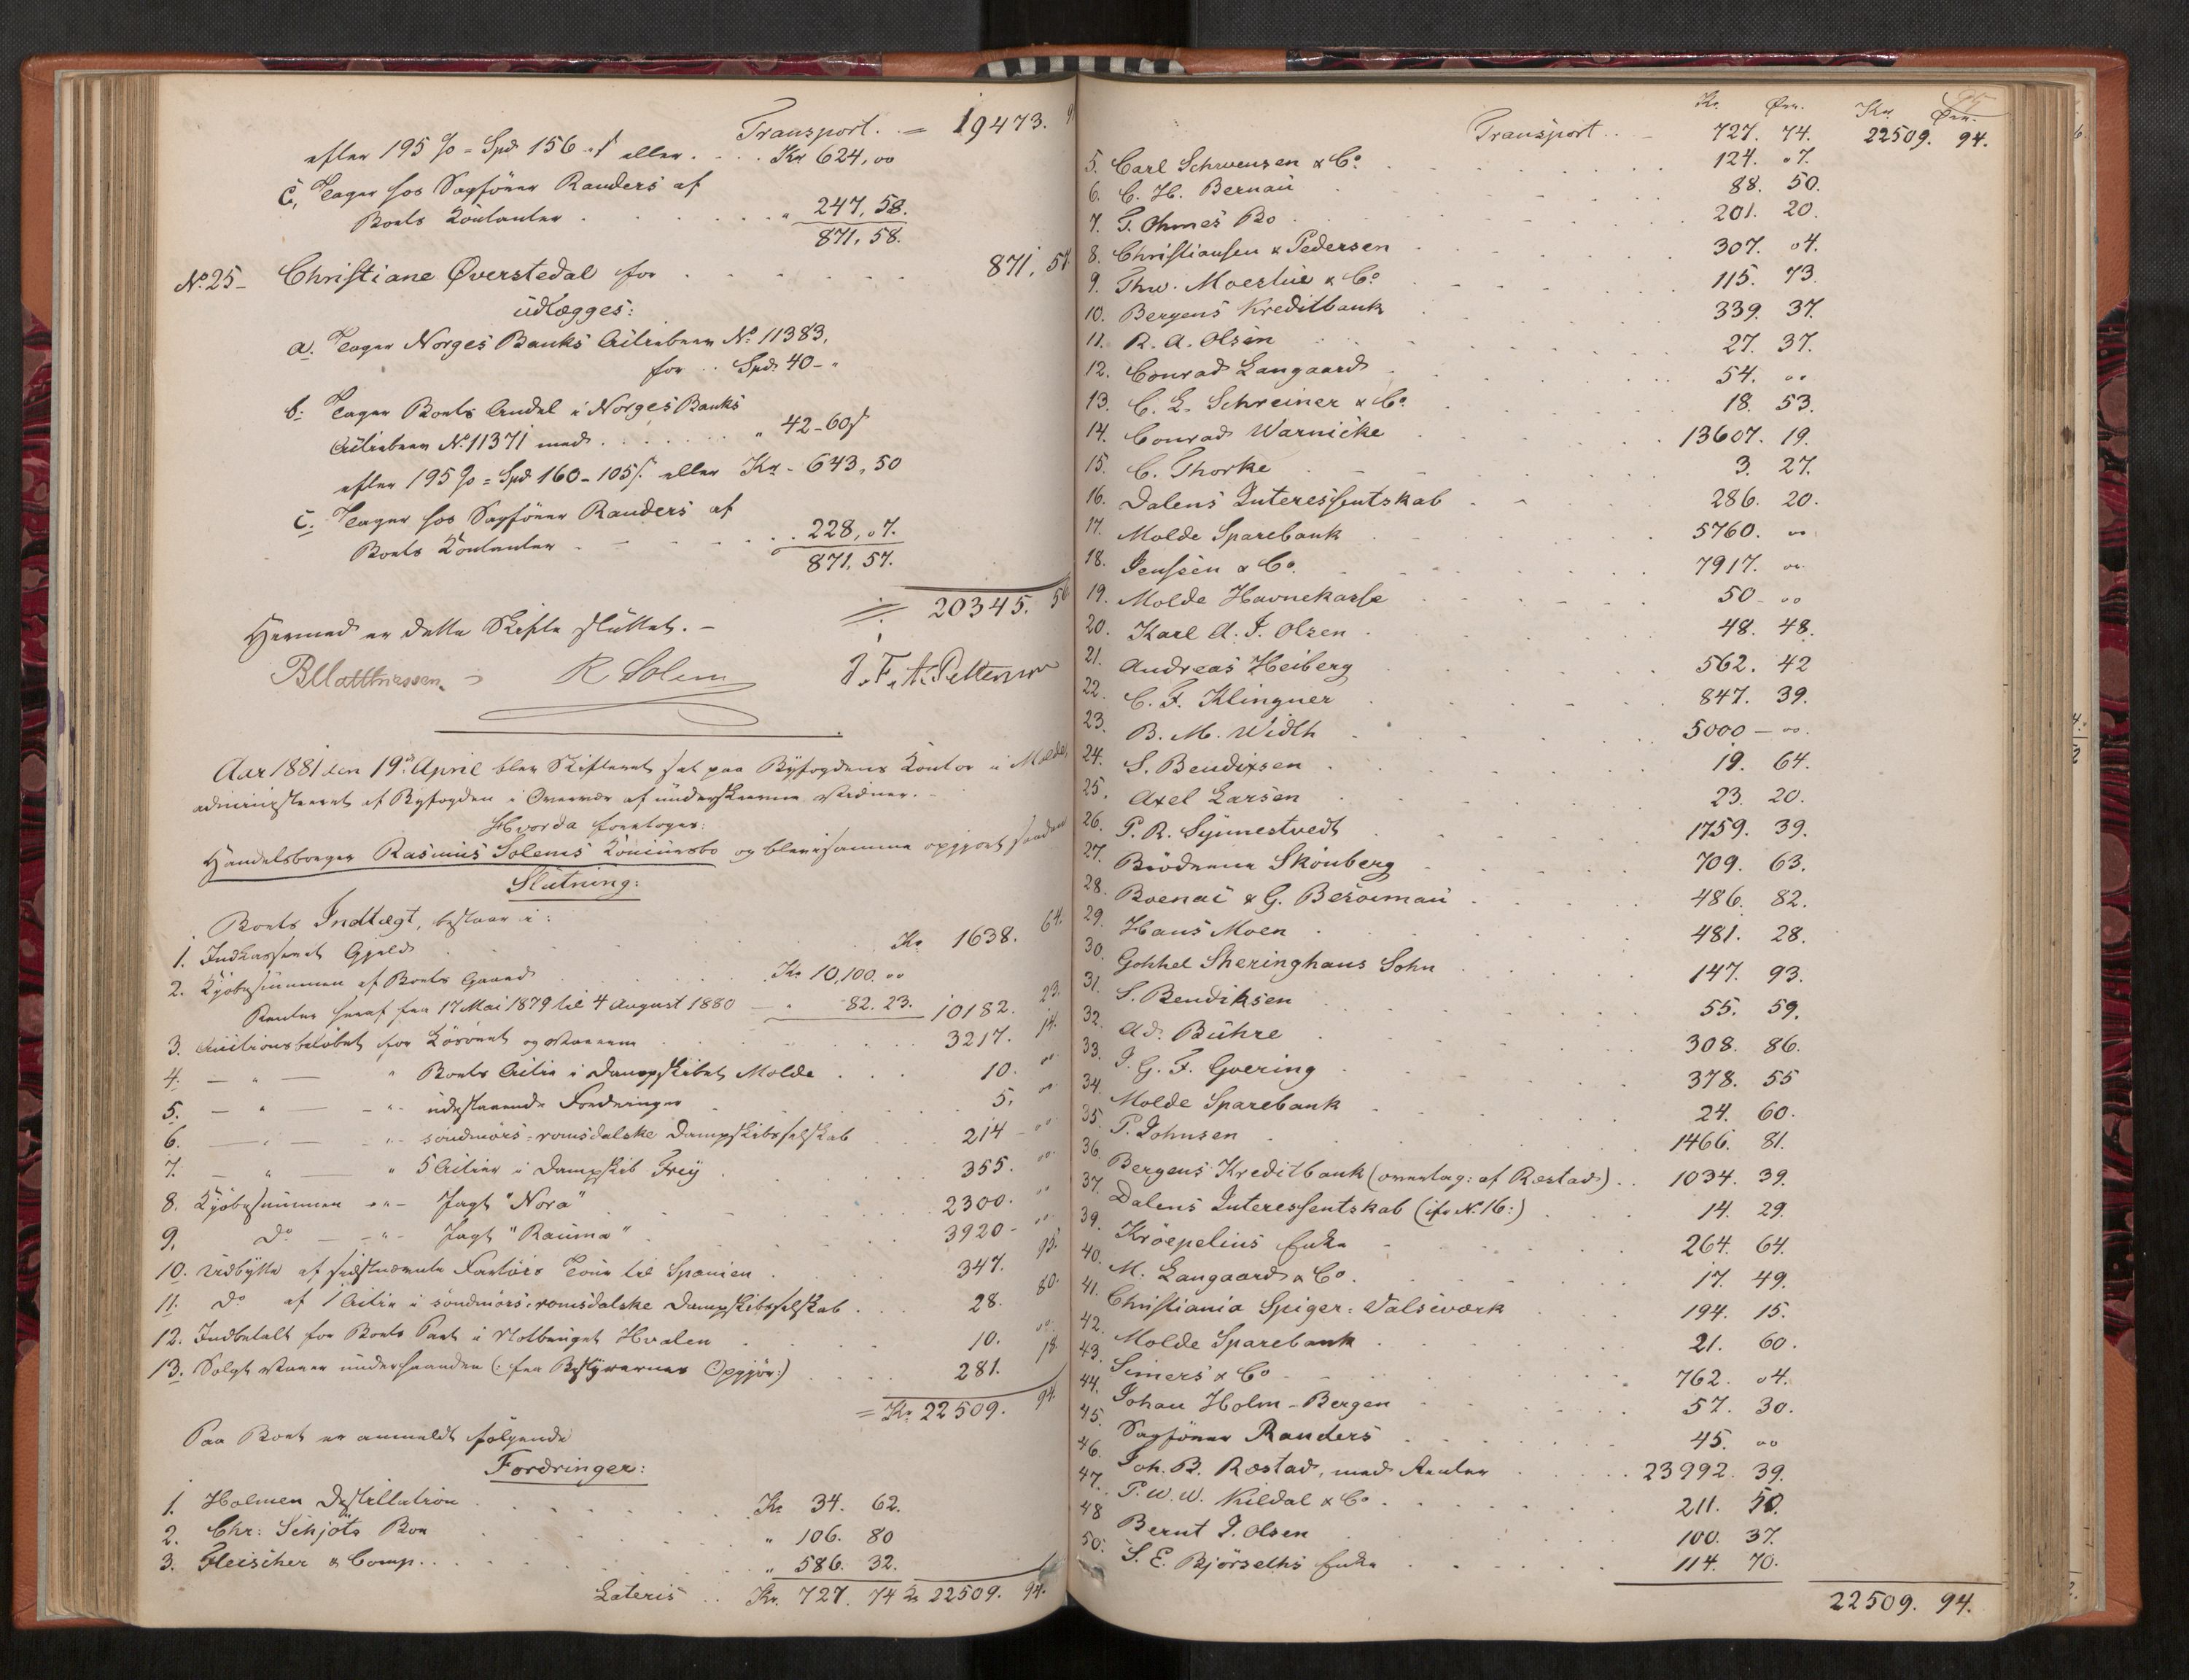 Transport. = 19473. 9
efter 195 % = Spd 156 " ſ eller . . . Kr 624,00
c, Tager hos Sagfører Randers af
Boets Kontanter . . . . . " 247, 58.
871, 58.
No. 25 - Christiane Øverstedal for . . . . . 871, 57
udlægges:
a. Tager Norges Banks Actiebrev No 11383,
for .. Spd. 40 - "
b. Tager Boets Andel i Norges Banks
Actiebrev No. 11371 med . . . . . " 42-60ſ
efter 195 % = Spd 160-105ſ. eller Kr - 643, 50
c. Tager hos Sagfører Randers af
Boets Kontanter . . . . . 228, 07.
871, 57.
20345. 56
Hermed er dette Skifte sluttet. -
B Matthiessen. R Solem J. F. A. Pettersen
Aar 1881 den 19de April blev Skifteret sat paa Byfogdens Kontor i Molde
administreret af Byfogden i Overvær af underskrevne Vidner. -
Hvorda foretoges:
Handelsborger Rasmus Solems Konkursbo og blev samme opgjort saadan
Slutning:
Boets Indtægt, bestaar i:
1. Indkasseret Gjeld . . . Kr 1638. 64.
2. Kjøbesummen af Boets Gaard . . . Kr 10,100. 00
Renter heraf fra 17 Mai 1879 til 4 August 1880 — " 82. 23. 10182. 23.
3. Auctionsbeløbet for Løsøret og Varerne . . . 3217. 14.
4. — " — " Boets Actie i Dampskibet Molde . . . 10. 00
5. — " — " udestaaende Fordringer . . . 5. 00
6. — " — " søndmørs-romsdalske Dampskibsselskab . . . 214 - 00
7. — " — " 5 Actier i Dampskib Frey . . . 355. 00
8. Kjøbesummen — " — Jagt "Nora" . . . 2300. 00
9. Do — " — Jagt "Rauma" . . . 3920 - 00
10. Udbytte af sidstnævnte Fartøis Tour til Spanien . . . 347. 95.
11. Do af 1 Actie i søndmørs-romsdalske Dampskibsselskab . . . 28. 80.
12. Indbetalt for Boets Part i Notbruget Hvalen . . . 10. 00
13. Solgt Varer underhaanden (: fra Bestyrernes Opgjør:) . . . 281. 18.
= Kr. 22509. 94.
Paa Boet er anmeldt følgende
Fordringer:
1. Holmen Destillation . . . Kr 34. 62.
2. Chr: Schjøts Boe . . . " 106. 80
3. Fleischer & Comp. . . . " 586. 32.
Lateris . . Kr. 727. 74 Kr 22509. 94.
Kr. Øre. Kr. Øre.
Transport . . — 727. 74. 22509. 94.
5. Carl Schwensen & Co . . . 124. 07.
6. C. H. Bernau . . . 88. 50.
7. T. Ohmes Bo . . . 201. 20.
8. Christiansen & Pedersen . . . 307. 04.
9. Thv. Moestue & Co . . . 115. 73.
10. Bergens Kreditbank . . . 339. 37.
11. R. A. Olsen . . . 27. 37.
12. Conrad Langaard . . . 54. 00
13. C. L. Schreiner & Co. . . . 18. 53.
14. Conrad Warnicke . . . 13607. 19.
15. C. Thorke . . . 3. 27.
16. Dalens Interessentskab . . . 286. 20.
17. Molde Sparebank . . . 5760. 00
18. Jenssen & Co. . . . 7917. 00
19. Molde Havnekasse . . . 50 - 00
20. Karl A. J. Olsen . . . 48. 48.
21. Andreas Heiberg . . . 562. 42
22. C. F. Klingner . . . 847. 39.
23. B. M. Width . . . 5000 - 00.
24. S. Bendixsen . . . 19. 64.
25. Axel Larsen . . . 23. 20.
26. P. R. Synnestvedt . . . 1759. 39.
27. Brødrene Skønberg . . . 709. 63.
28. Boenac & G. Besoeman . . . 486. 82.
29. Hans Moen . . . 481. 28.
30. Gohhel Sheringhaus Sohn . . . 147. 93.
31. S. Bendiksen . . . 55. 59.
32. Ad. Bühre . . . 308. 86.
33. J. G. F. Goering . . . 378. 55
34. Molde Sparebank . . . 24. 60.
35. P. Johnsen . . . 1466. 81.
36. Bergens Kreditbank (overtag: af Røstad) . . 1034. 39.
37. Dalens Interessentskab (ifr No. 16:) . . . 14. 29.
39. Krøepelius Enke . . . 264. 64.
40. M. Langaard & Co. . . . 17. 49.
41. Christiania Spiger: Valseværk . . . 194. 15.
42. Molde Sparebank . . . 21. 60.
43. Simers & Co . . . 762. 04.
44. Johan Holm - Bergen . . . 57. 30.
45. Sagfører Randers . . . 45. 00
46. Joh. B. Røstad, med Renter . . . 23992. 39.
47. P. W. W. Kildal & Co . . . 211. 50.
48 Bernt J. Olsen . . . 100. 37.
50. S. E. Bjørseths Enke . . . 114. 70.
22509. 94.